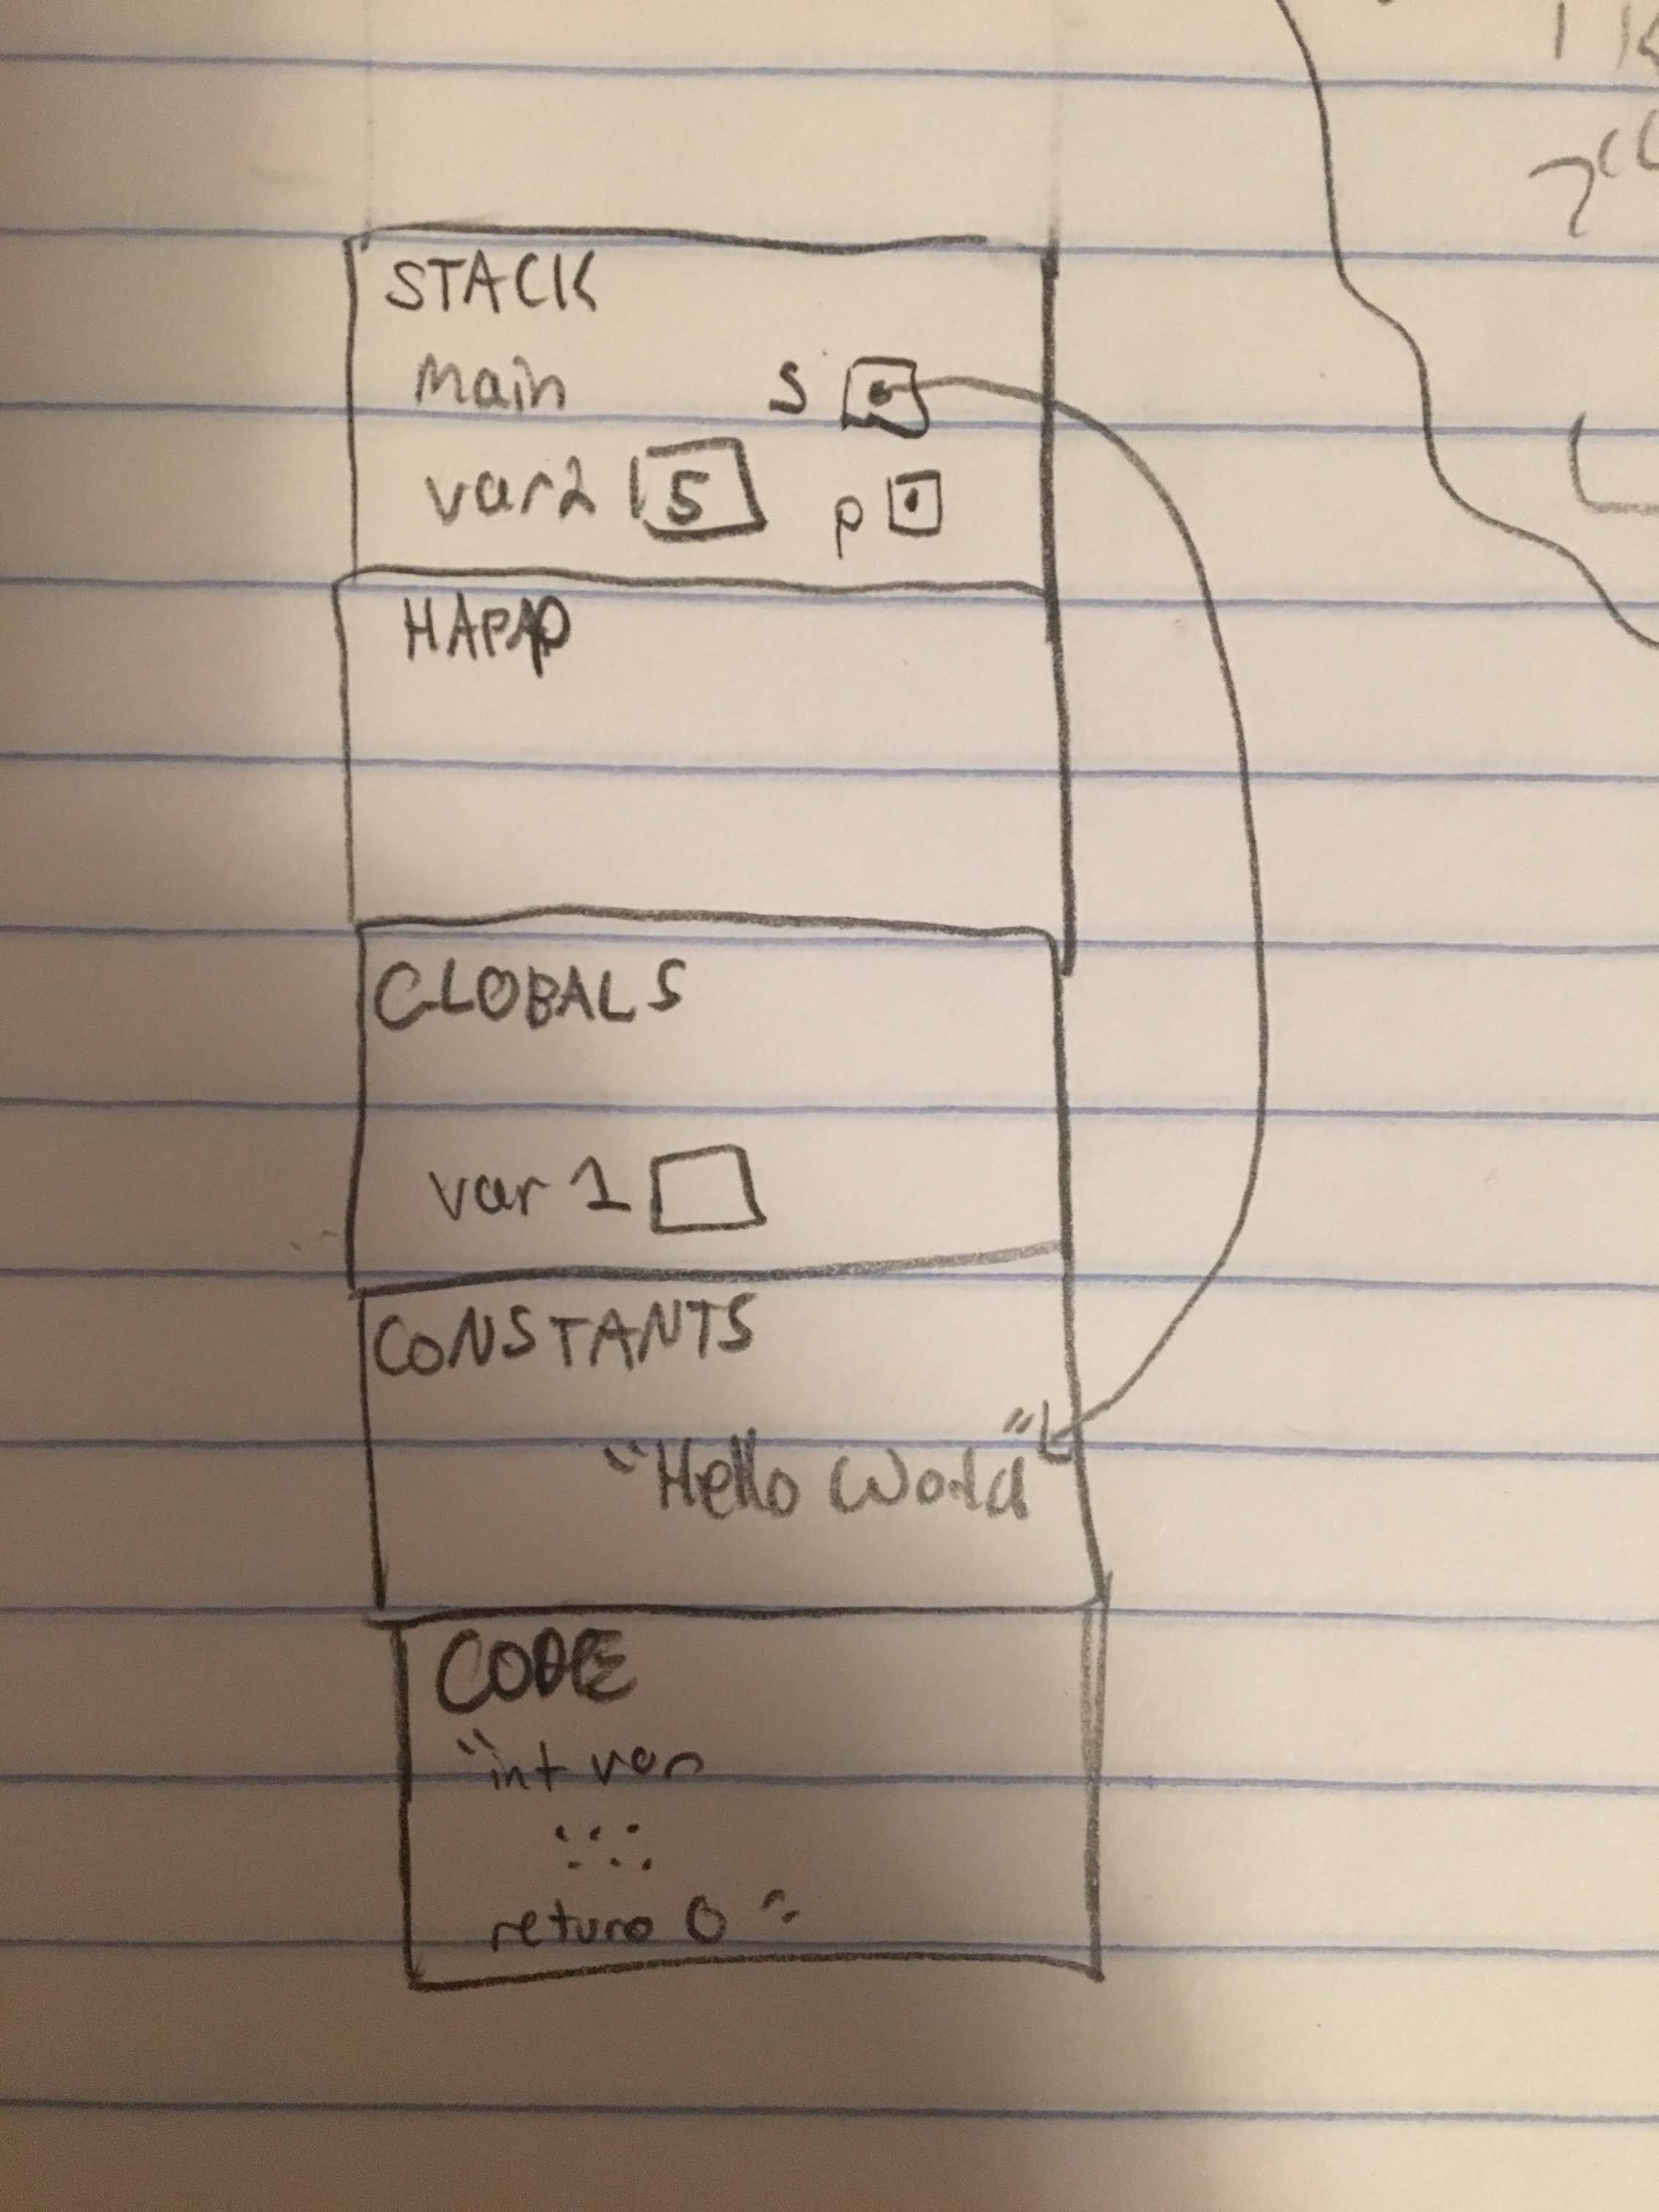 STACK
main s
var2 5 p
HAPAP
GLOBALS
var 1
CONSTANTS
"Hello World"
CODE
"int var
return 0"